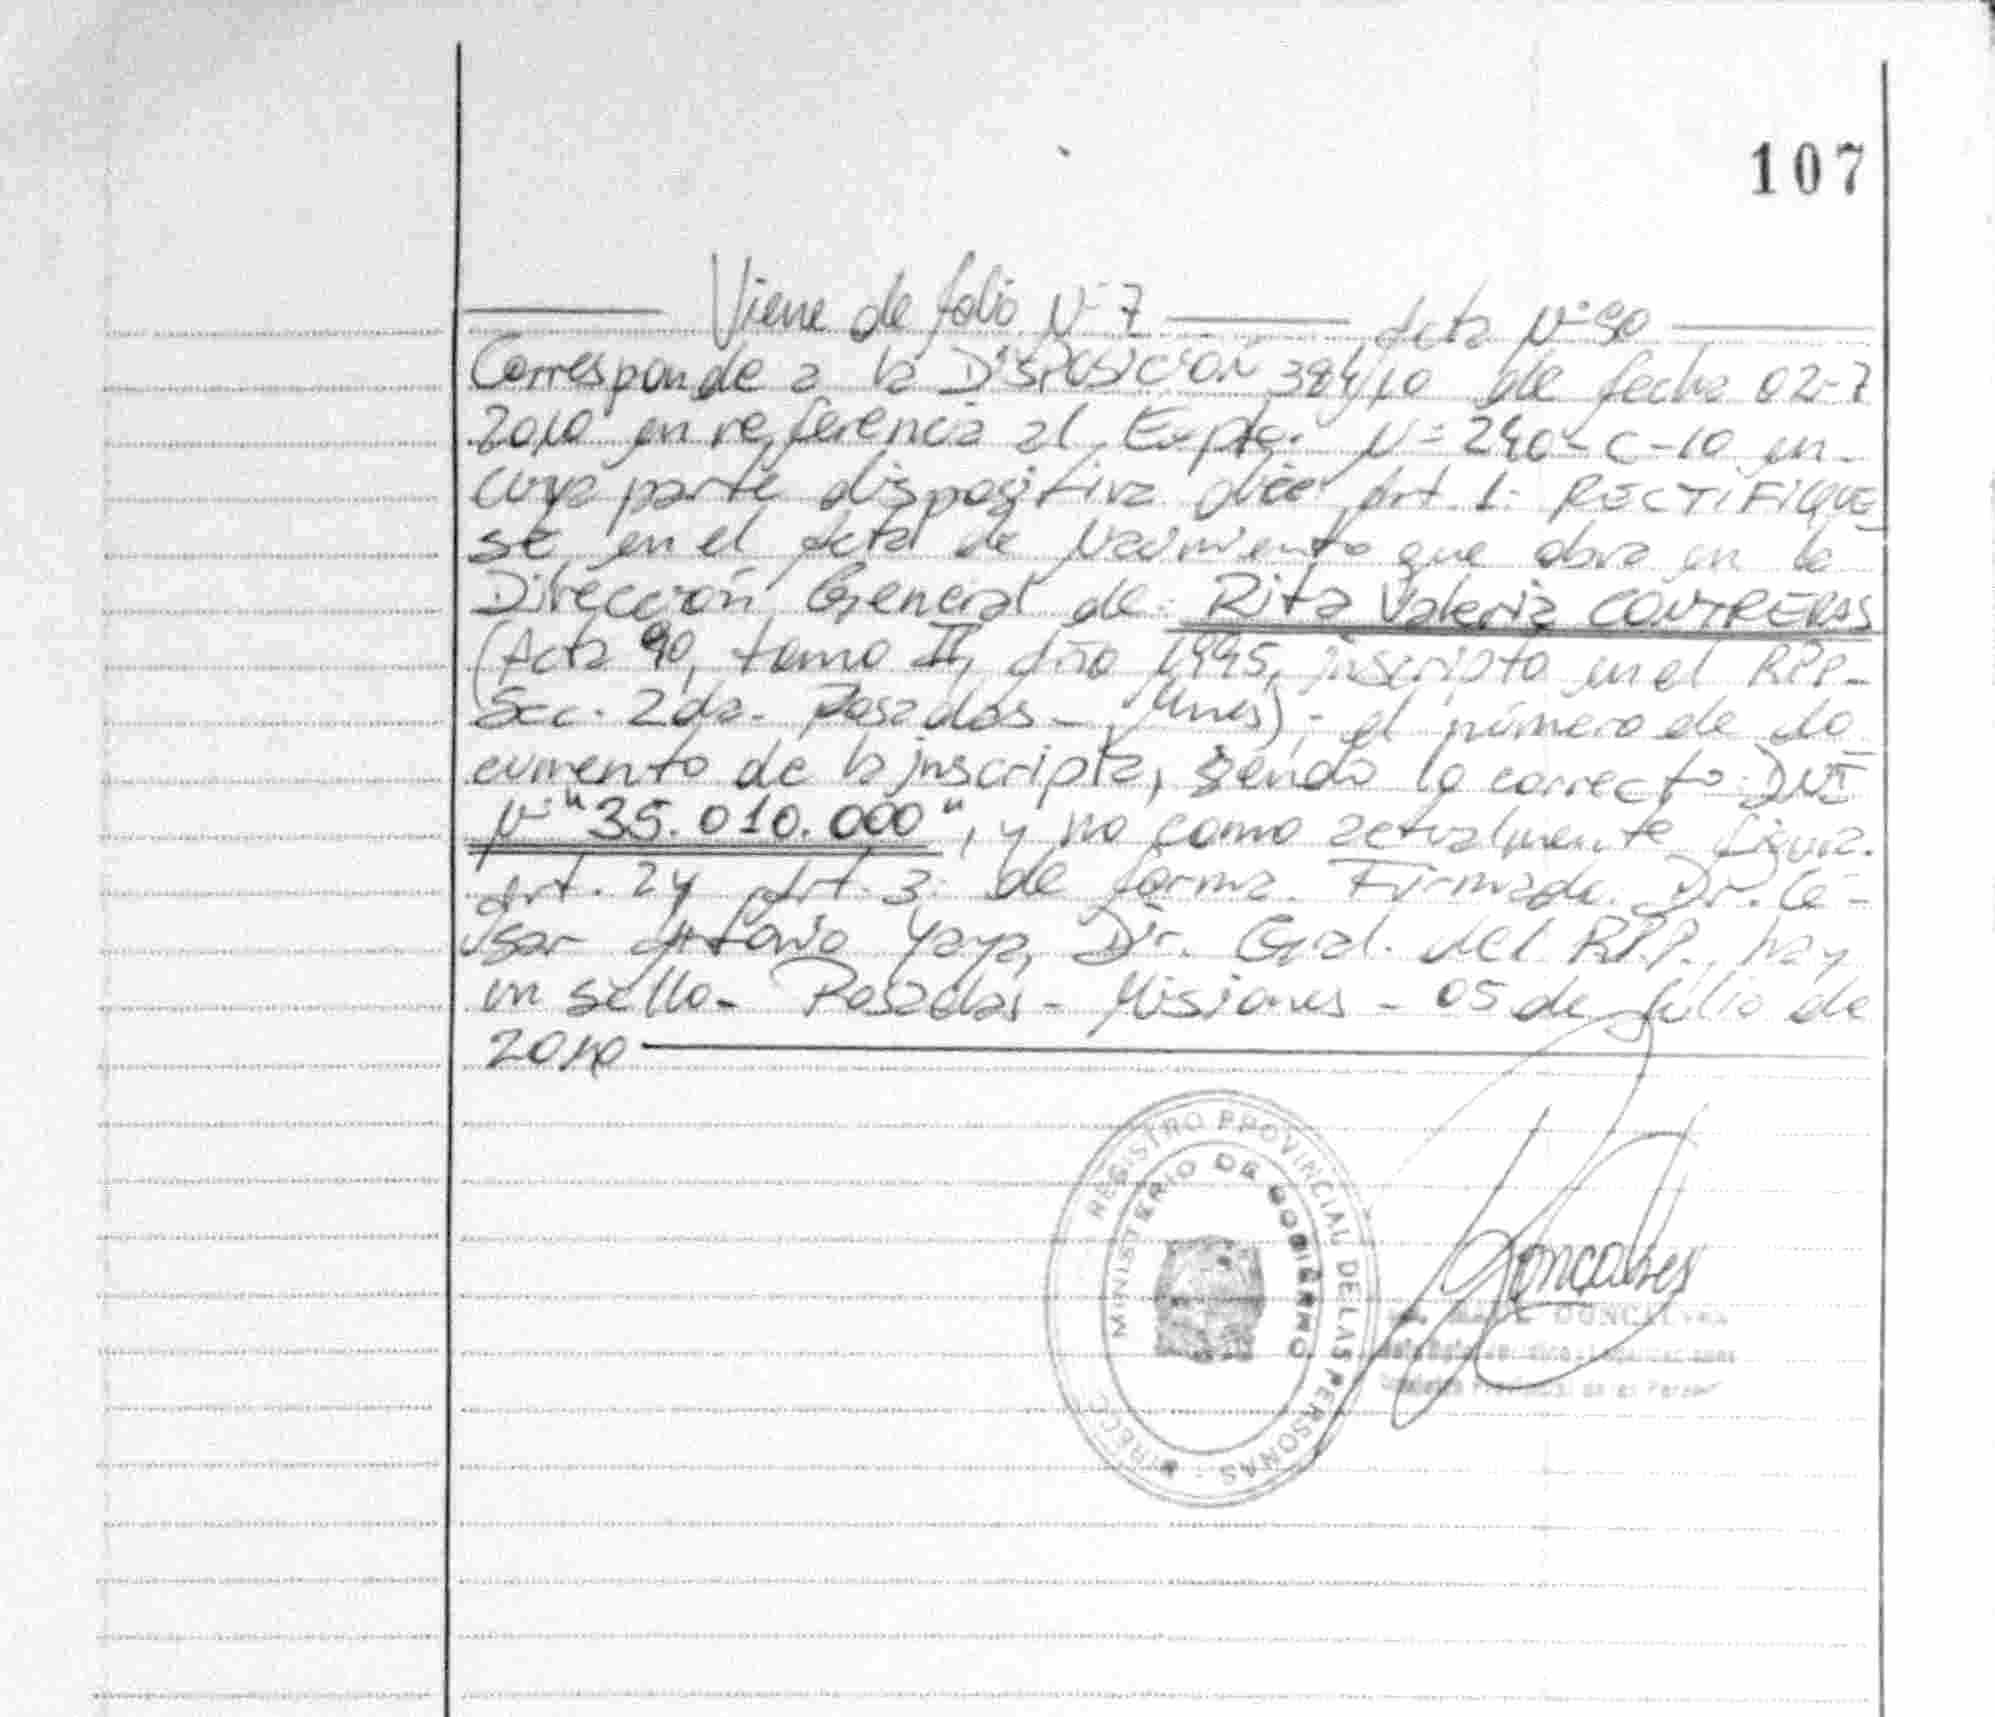 107
Viene de folio N° 7 Acta N° 90
Corresponde a la DISPOSICIÓN 384/10 de fecha 02-7
2010 en referencia al Expte. N° 240-C-10 en
cuya parte dispositiva dice: Art. 1: RECTIFIQUE
SE en el Acta de Nacimiento que obra en la
Dirección General de: Rita Valeria CONTRERAS
(Acta 90, tomo II, Año 1995, inscripto en el RPP-
Sec. 2da. Posadas - Mnes); el número de do
cumento de la inscripta, siendo lo correcto: DNI
N° "35.010.000", y no como actualmente figura.
Art. 2 y Art. 3: de forma. Firmado: Dr. Cé-
sar Antonio Yaya, Dir. Gral. del R.P.P., hay
un sello. Posadas - Misiones - 05 de Julio de
2010
REGISTRO PROVINCIAL DE LAS PERSONAS
MINISTERIO DE GOBIERNO
Goncalves